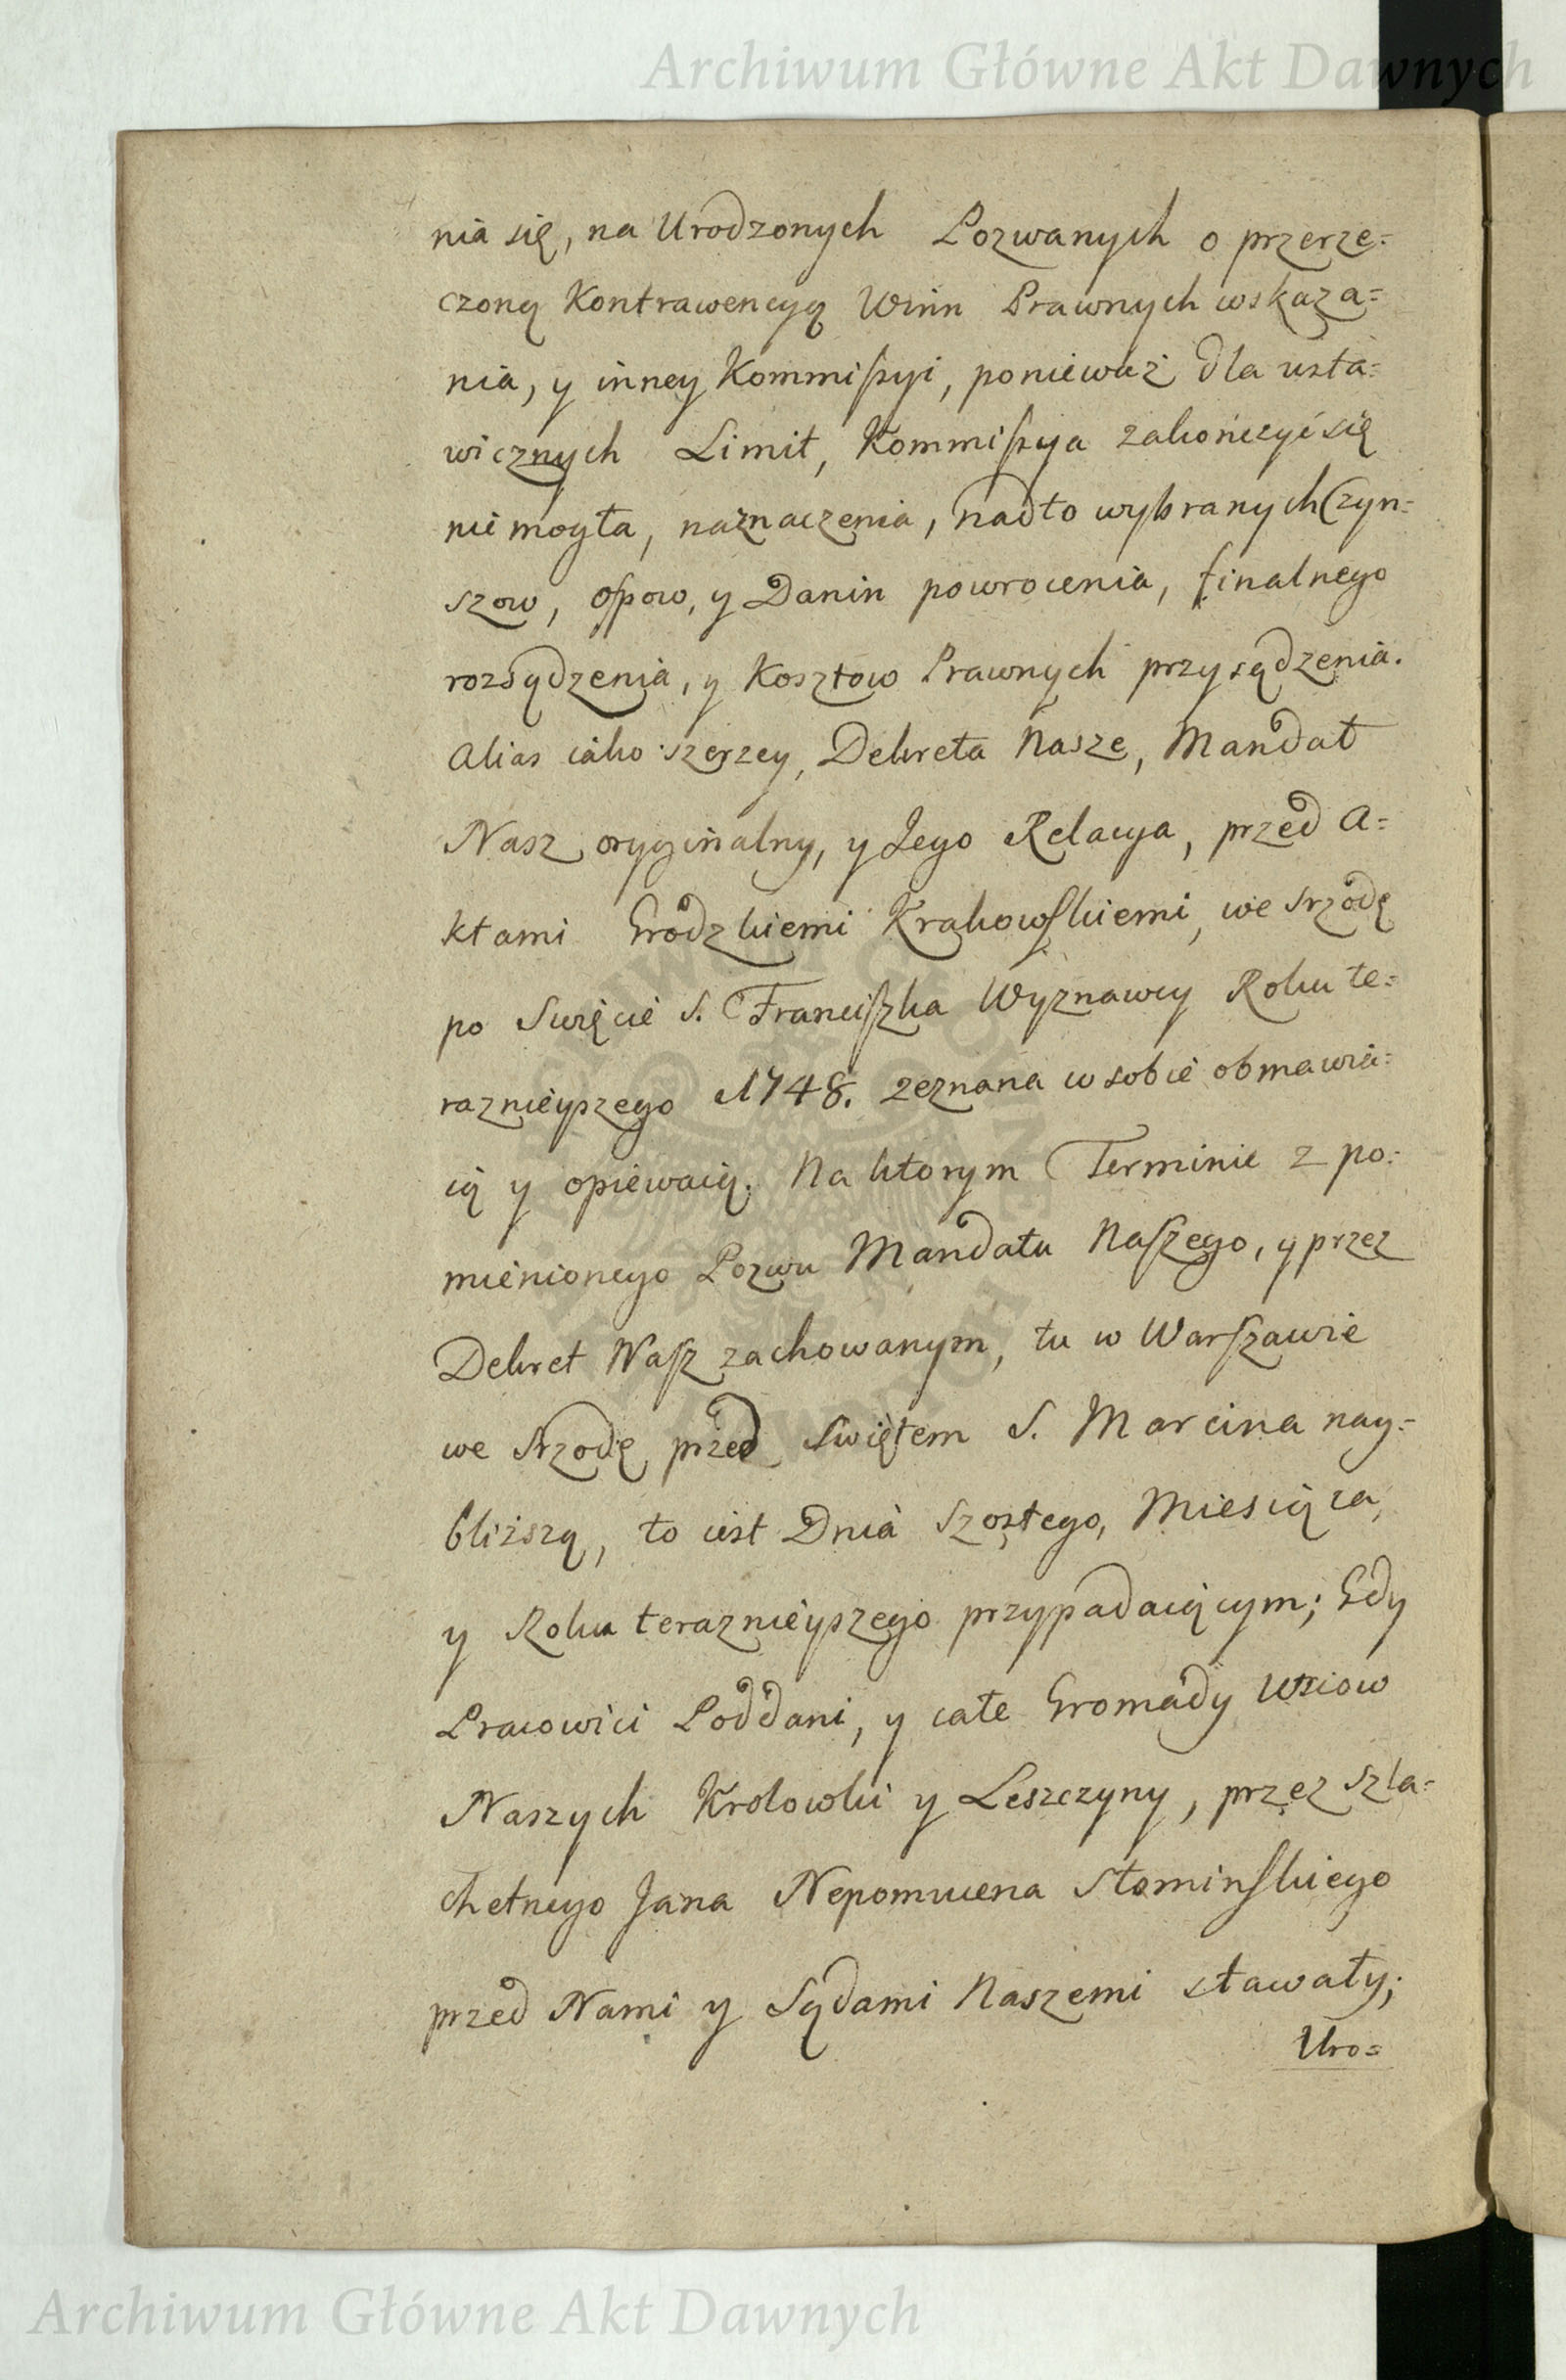 Archiwum Główne Akt Dawnych
nia się, na Urodzonych Pozwanych o przerze=
czoną Kontrawencyą Winn Prawnych wskaza=
nia, y inney Kommissyi, ponieważ dla usta=
wicznych Limit, Kommissya zakończyć się
nie mogła, naznaczenia, nadto wybranych Czyn=
szow, ospow, y Danin powrocenia, finalnego
rozsądzenia, y Kosztow Prawnych przysądzenia.
Alias iako szerzey, Dekreta Nasze, Mandat
Nasz oryginalny, y Jego Relacya, przed A=
ktami Grodzkiemi Krakowskiemi, we srzodę
po Swięcie S. Franciszka Wyznawcy Roku te=
raznieyszego 1748. zeznana w sobie obmawia=
ią y opiewaią. Na ktorym Terminie z po=
mienionego Pozwu Mandatu Naszego, y przez
Dekret Nasz zachowanym, tu w Warszawie
we srzodę przed Swiętem S. Marcina nay=
bliższą, to iest Dnia szostego, Miesiąca,
y Roku teraznieyszego przypadaiącym; Gdy
Pracowici Poddani, y całe Gromady Wsiow
Naszych Krolowki y Leszczyny, przez szla=
chetnego Jana Nepomucena Słominskiego
przed Nami y Sądami Naszemi stawały;
Uro=
Archiwum Główne Akt Dawnych